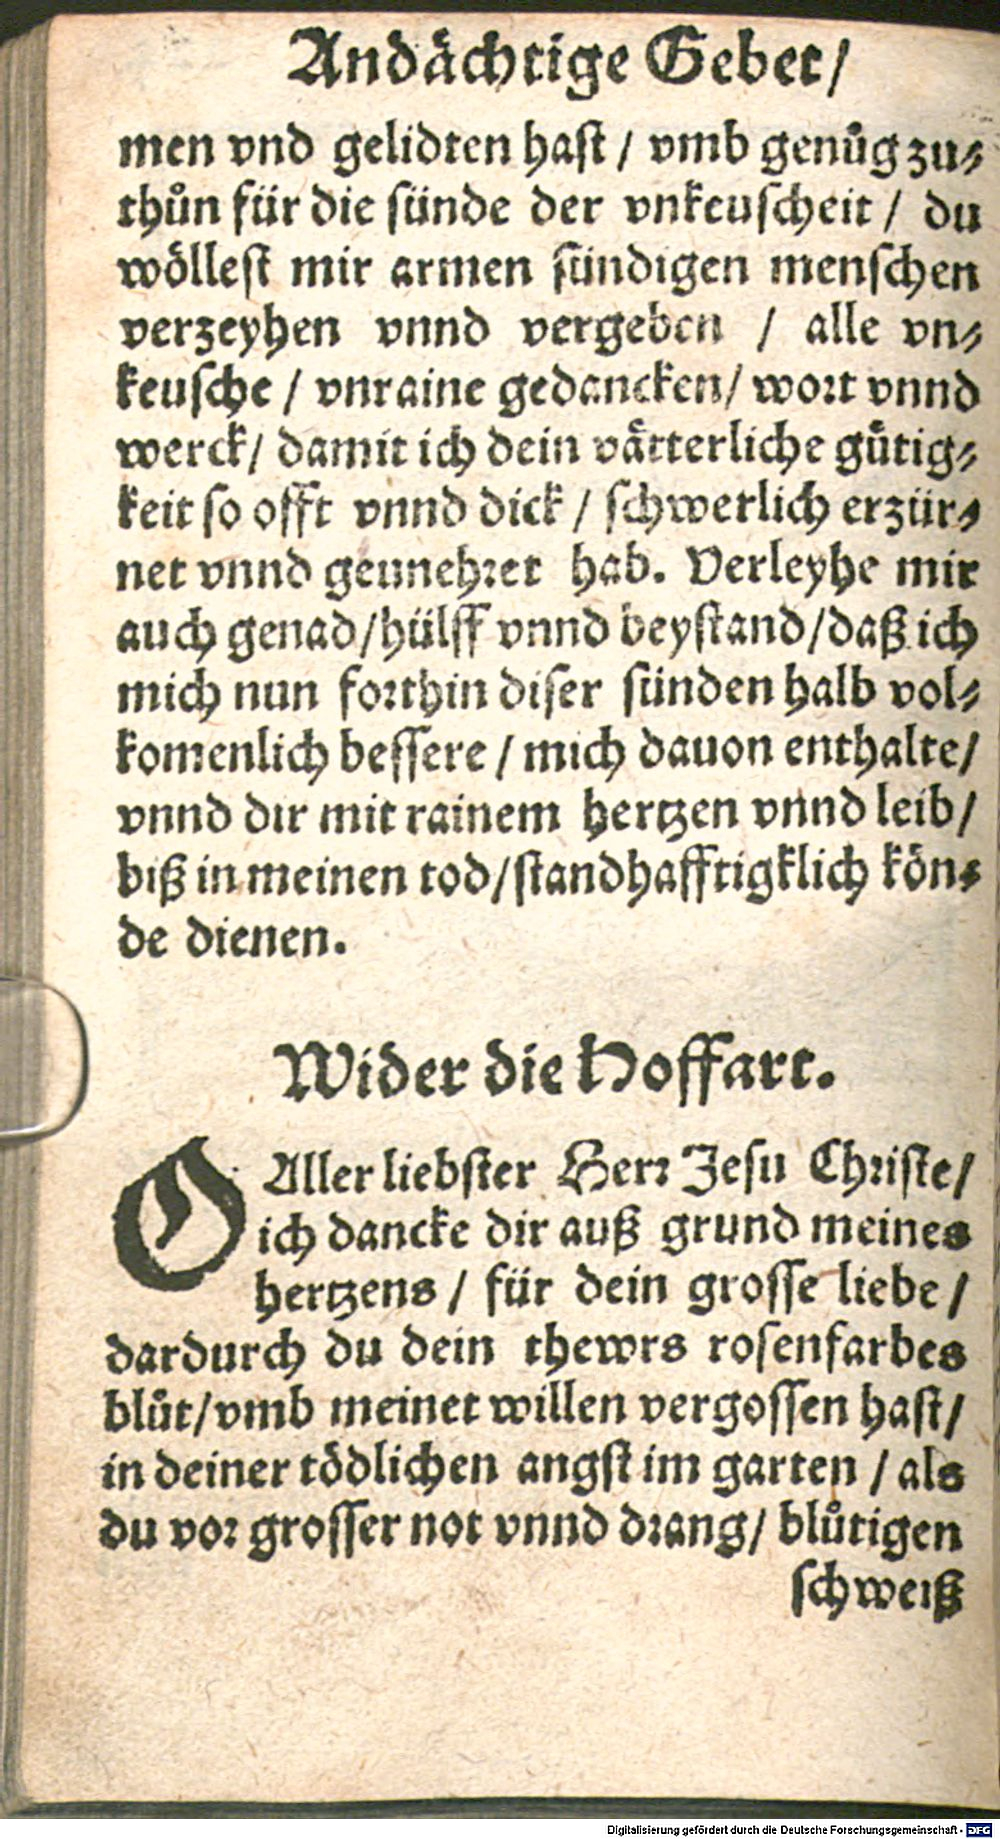 Andächtige Gebet/
men vnd gelidten haſt / vmb genůg zu⸗
thůn für die ſünde der vnkeuſcheit / du
wöllest mir armen ſündigen menſchen
verzeyhen vnnd vergeben / alle vn⸗
keuſche / vnraine gedancken/ wort vnnd
werck/ damit ich dein vätterliche gütig⸗
keit ſo offt vnnd dick / ſchwerlich erzür⸗
net vnnd geunehret hab. Verleyhe mir
auch genad/hülff vnnd beyſtand/daß ich
mich nun forthin diſer ſünden halb vol⸗
komenlich beſſere / mich dauon enthalte/
vnnd dir mit rainem hertzen vnnd leib/
biß in meinen tod/ſtandhafftigklich kön⸗
de dienen.
Wider die Hoffart.
O Aller liebſter Herr Jeſu Chriſte/
ich dancke dir auß grund meines
hertzens / für dein groſſe liebe /
dardurch du dein thewrs roſenfarbes
blůt/vmb meinet willen vergoſſen haſt/
in deiner tödlichen angſt im garten / als
du vor groſſer not vnnd drang/ blůtigen
ſchweiß
Digitalisierung gefördert durch die Deutsche Forschungsgemeinschaft - DFG